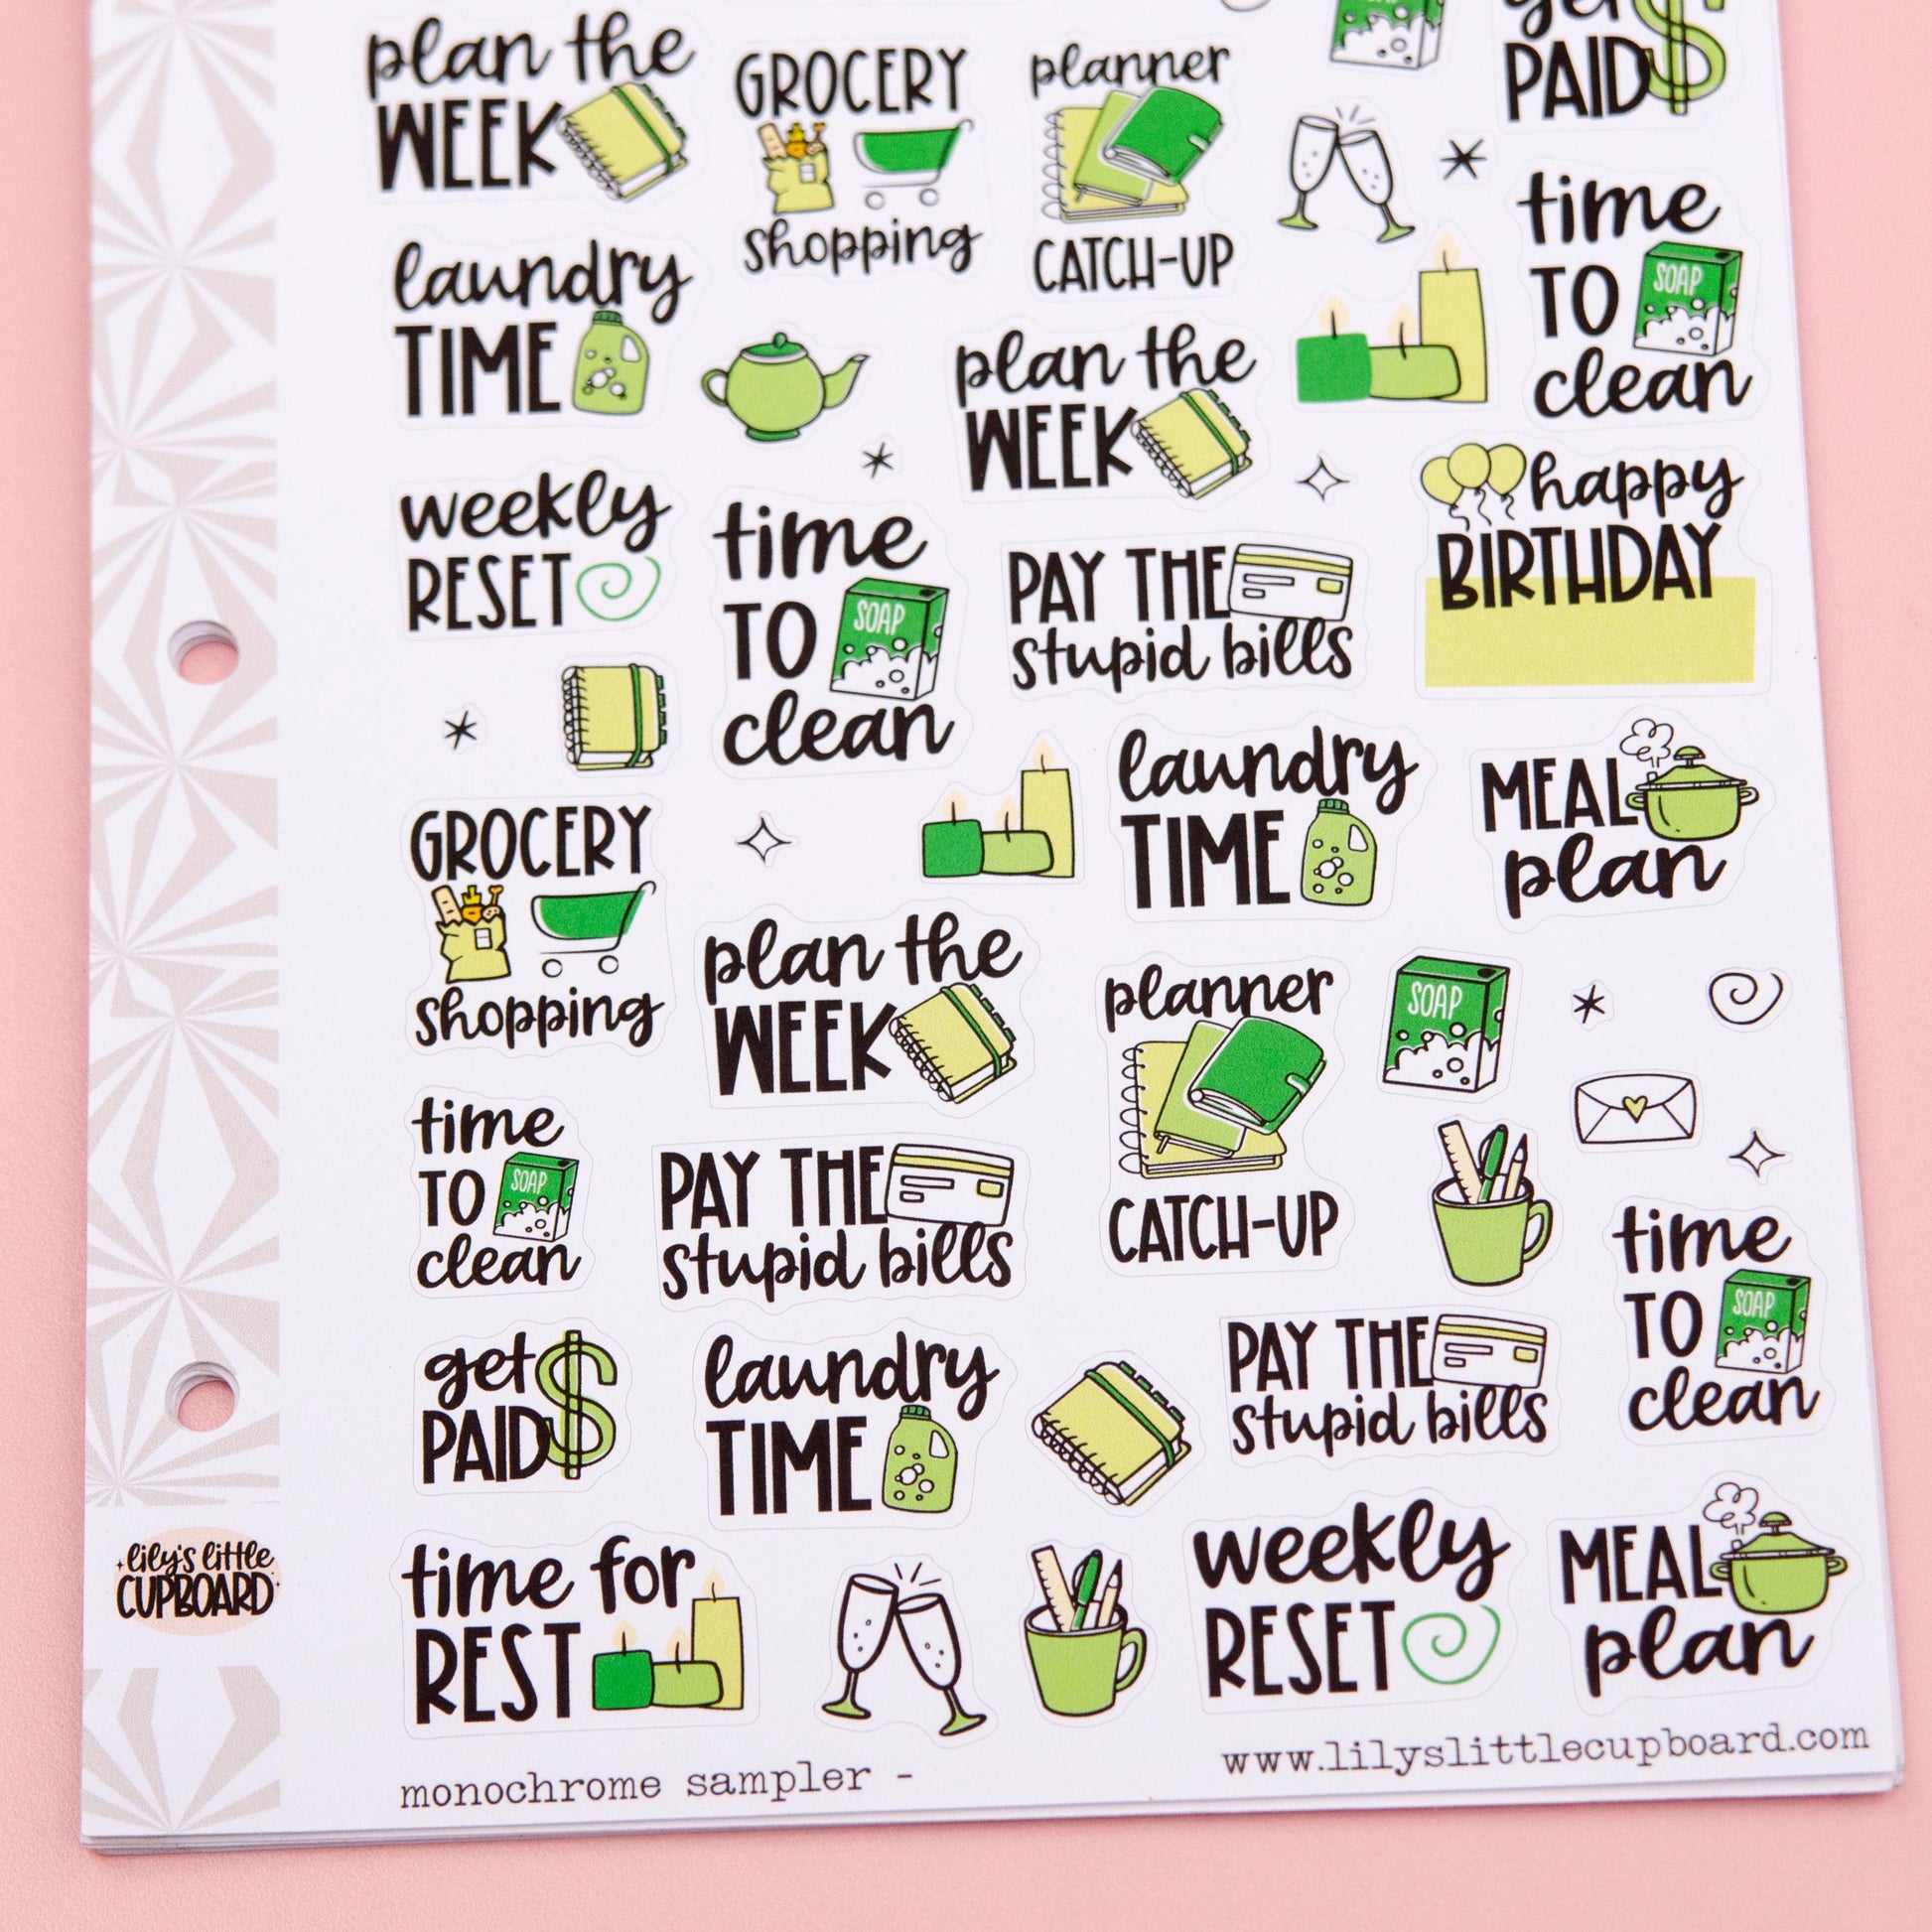 plan the
WEEK
GROCERY
shopping
planner
CATCH-UP
get
PAID
laundry
TIME
time
TO
SOAP
clean
plan the
WEEK
weekly
RESET
time
TO
SOAP
clean
PAY THE
stupid bills
happy
BIRTHDAY
GROCERY
shopping
laundry
TIME
MEAL
plan
plan the
WEEK
planner
CATCH-UP
SOAP
time
TO
SOAP
clean
PAY THE
stupid bills
time
TO
SOAP
clean
get
PAID
laundry
TIME
PAY THE
stupid bills
lily's little
CUPBOARD
time for
REST
weekly
RESET
MEAL
plan
monochrome sampler -
www.lilyslittlecupboard.com